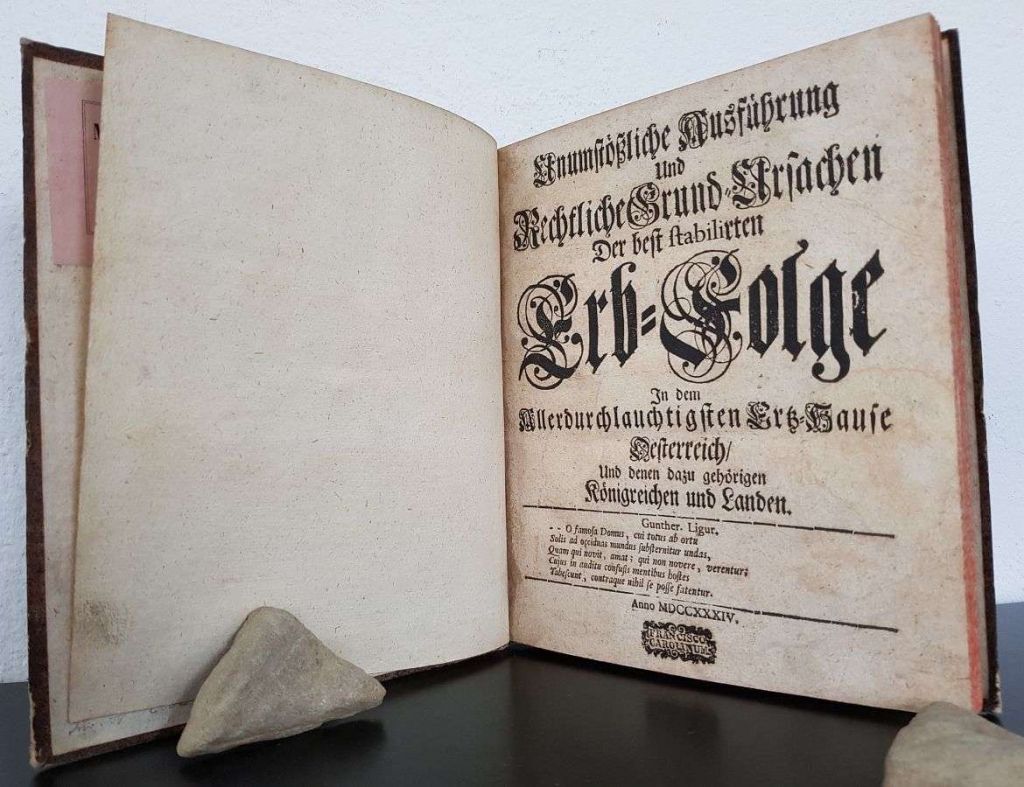 Unumstößliche Ausführung
Und
Rechtliche Grund-Ursachen
Der best stabilirten
Erb-Folge
In dem
Allerdurchlauchtigsten Ertz-Hause
Oesterreich/
Und denen dazu gehörigen
Königreichen und Landen.
Gunther. Ligur.
- - O famosa Domus, cui totus ab ortu
Solis ad occiduas mundus substernitur undas,
Quam qui novit, amat; qui non novere, verentur;
Cujus in auditu confusis mentibus hostes
Tabescunt, contraque nihil se posse fatentur.
Anno MDCCXXXIV.
FRANCISCO
CAROLINUM